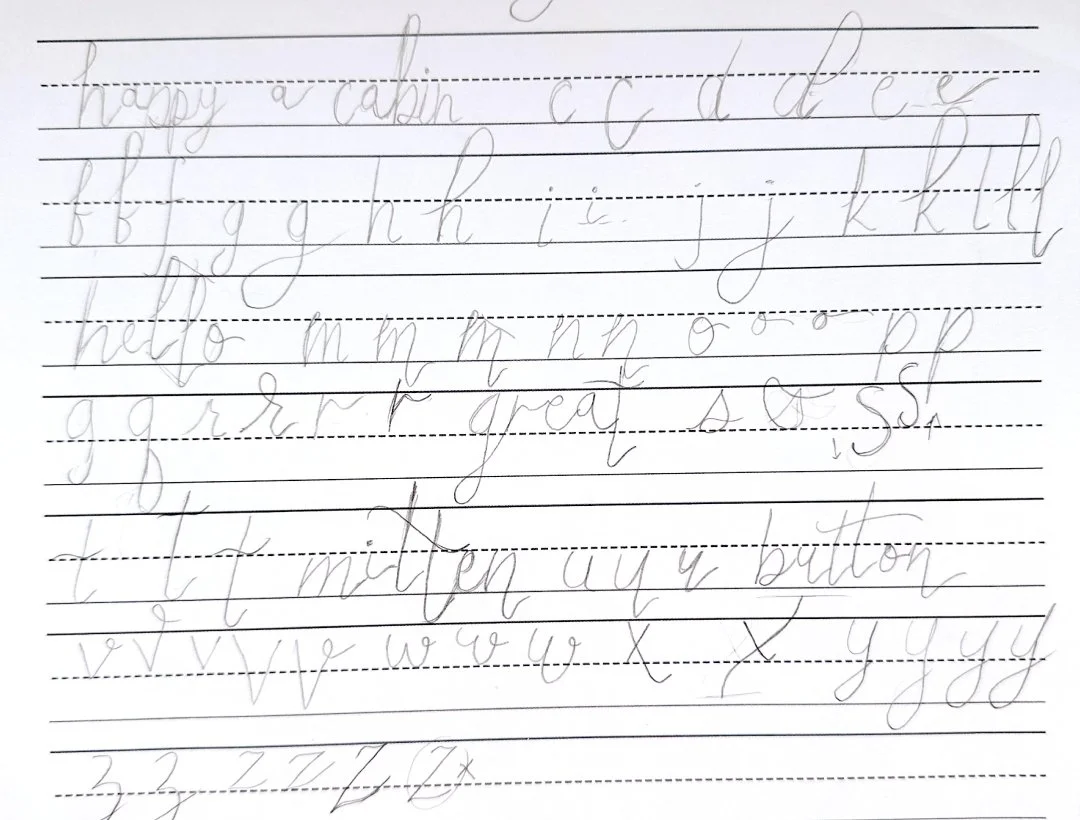 happy a cabin c c d d e e
f f f g g h h i i j j k k l l l
hello m m m n n o o o p p
g q r r r r great s s s s
t t t mitten u u u button
v v v v v w w w x x y y y y
z z z z z z x